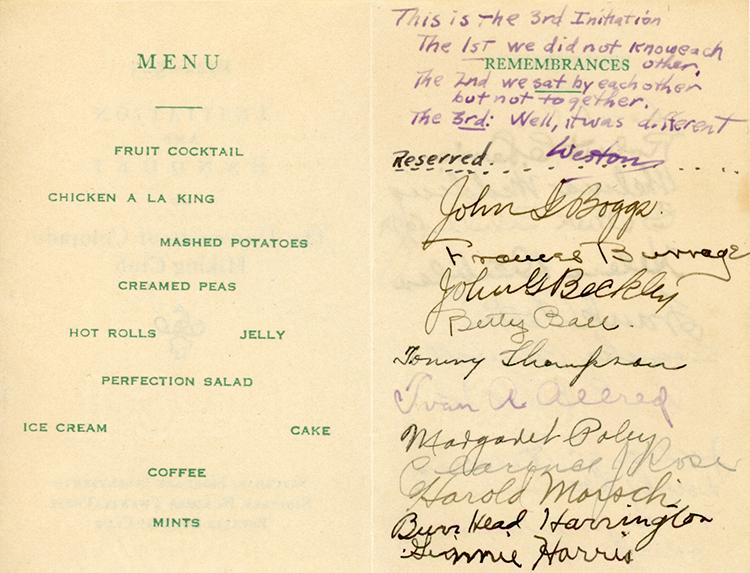 MENU
FRUIT COCKTAIL
CHICKEN A LA KING
MASHED POTATOES
CREAMED PEAS
HOT ROLLS JELLY
PERFECTION SALAD
ICE CREAM CAKE
COFFEE
MINTS
This is the 3rd Initiation
The 1st we did not know each other.
REMEMBRANCES
The 2nd we sat by each other
but not together.
The 3rd: Well, it was different
Reserved. Weston
John G Boggs.
Frances Burrage
John G Beckley
Betty Ball.
Tommy Thompson
Ivan A Allred
Margaret Poley
Clarence J Rose
Harold
Burr Head Harrington
Harris